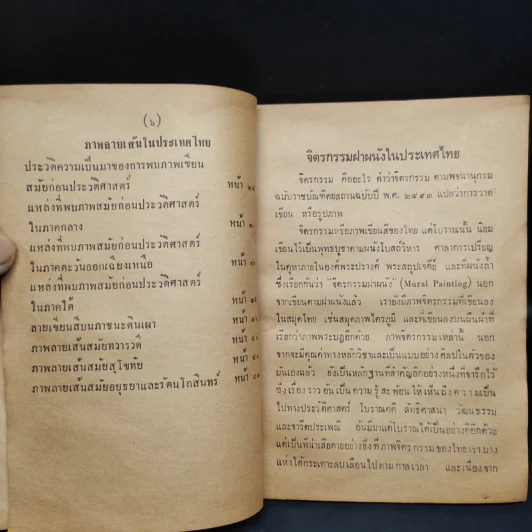 (๖)
ภาพลายเส้นในประเทศไทย
ประวัติความเป็นมาของการพบภาพเขียน
สมัยก่อนประวัติศาสตร์ หน้า
แหล่งที่พบภาพสมัยก่อนประวัติศาสตร์
ในภาคกลาง หน้า
แหล่งที่พบภาพสมัยก่อนประวัติศาสตร์
ในภาคตะวันออกเฉียงเหนือ หน้า
แหล่งที่พบภาพสมัยก่อนประวัติศาสตร์
ในภาคใต้ หน้า
ลายเขียนสีบนภาชนะดินเผา หน้า
ภาพลายเส้นสมัยทวารวดี หน้า
ภาพลายเส้นสมัยสุโขทัย หน้า
ภาพลายเส้นสมัยอยุธยาและรัตนโกสินทร์ หน้า
จิตรกรรมฝาผนังในประเทศไทย
จิตรกรรม คืออะไร คำว่าจิตรกรรม ตามพจนานุกรม
ฉบับราชบัณฑิตยสถานฉบับปี พ.ศ. ๒๔๙๓ แปลว่าการวาด
เขียน หรือรูปภาพ
จิตรกรรมหรือภาพเขียนสีของไทย แต่โบราณนั้น นิยม
เขียนไว้เป็นพุทธบูชาตามผนังโบสถ์วิหาร ศาลาการเปรียญ
ในคูหาภายในองค์พระปรางค์ พระสถูปเจดีย์ และที่ผนังถ้ำ
ซึ่งเรียกกันว่า "จิตรกรรมฝาผนัง" (Mural Painting) นอก
จากเขียนตามฝาผนังแล้ว เรายังมีภาพจิตรกรรมที่เขียนลง
ในสมุดไทย เช่นสมุดภาพไตรภูมิ และที่เขียนลงบนผืนผ้าที่
เรียกว่าภาพพระบฏอีกด้วย ภาพจิตรกรรมเหล่านั้น นอก
จากจะมีคุณค่าทางหลักวิชาและเป็นแบบอย่างศิลปในตัวของ
มันเองแล้ว ยังเป็นหลักฐานที่สำคัญอีกอย่างหนึ่งที่จารึกไว้
ซึ่งเรื่องราว อันเป็นความรู้สะท้อนให้เห็นถึงความเป็น
ไปทางประวัติศาสตร์ โบราณคดี ลัทธิศาสนา วัฒนธรรม
และจารีตประเพณี อันมีมาแต่โบราณได้เป็นอย่างดีอีกด้วย
แต่เป็นที่น่าเสียดายอย่างยิ่งที่ภาพจิตรกรรมของไทยเราบาง
แห่งได้กระเทาะลบเลือนไปตามกาลเวลา และเนื่องจาก